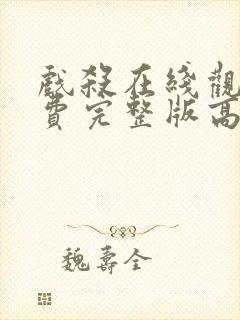 戲殺在綫觀
費完整版高
魏壽全